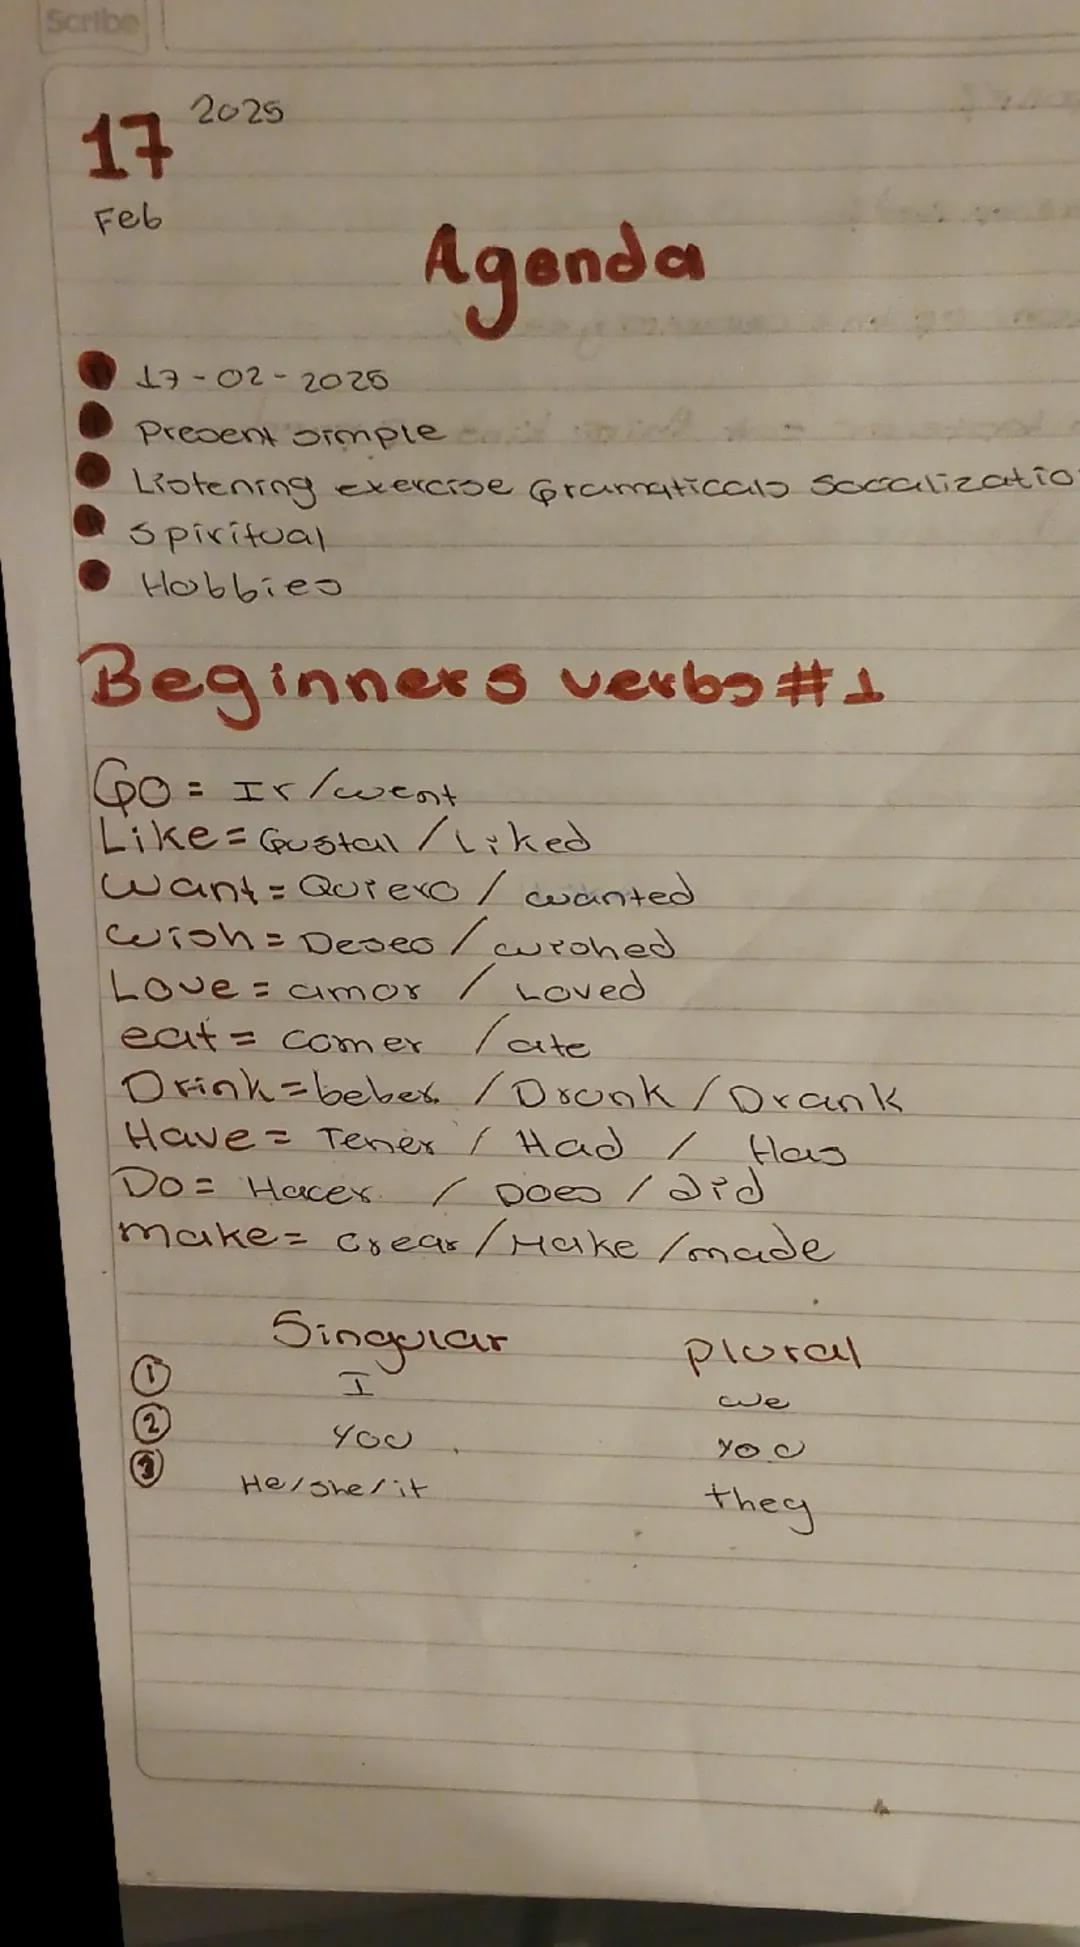 Scribe
17 2025
Feb
Agenda
17-02-2025
Present simple
Listening exercise Gramaticals Socalizatio
Spiritual
Hobbies
Beginners verbs #1
Go = Ir / went
Like = Gustar / Liked
want = Quiero / wanted
wish = Deseo / wished
Love = amor / Loved
eat = comer / ate
Drink = beber / Drunk / Drank
Have = Tener / Had / Has
Do = Hacer / Does / did
make = crear / Make / made
Singular plural
1 I we
2 you you
3 He/she/it they